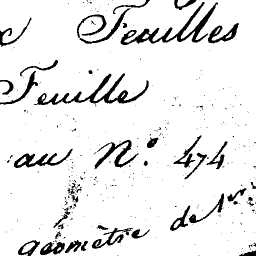 x Feuilles
Feuille
au N.° 474
géomètre de 1er